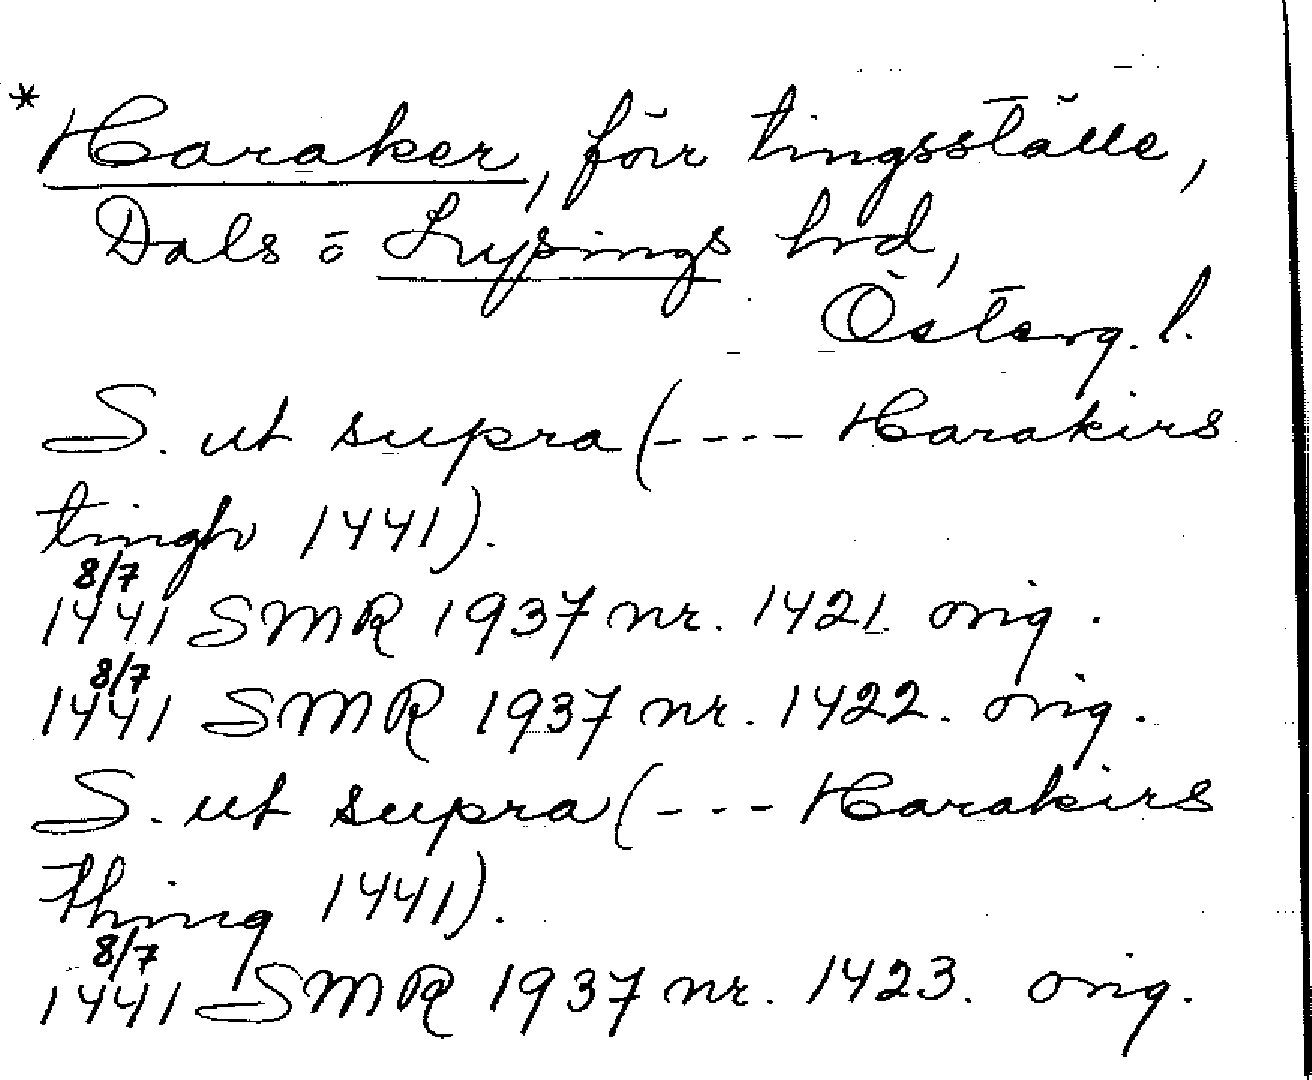 * Haraker, förr tingsställe,
Dals o Lysings hrd,
Österg. l.
S. ut supra (---- Harakirs
tingh 1441).
8/7
1441 SMR 1937 nr. 1421 orig.
8/7
1441 SMR 1937 nr. 1422. orig.
S. ut supra (--- Harakirs
thing 1441).
8/7
1441 SMR 1937 nr. 1423. orig.